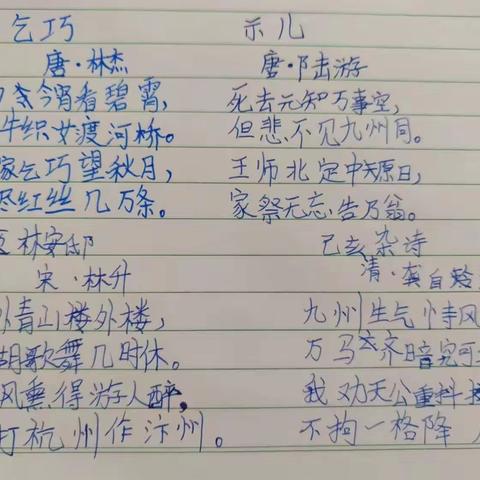 乞巧
唐·林杰
今宵看碧霄,
牛织女渡河桥。
家乞巧望秋月,
尽红丝几万条。
林安邸
宋·林升
外青山楼外楼,
湖歌舞几时休。
风熏得游人醉,
杭州作汴州。
示儿
唐·陆游
死去元知万事空,
但悲不见九州同。
王师北定中原日,
家祭无忘告乃翁。
己亥杂诗
清·龚自珍
九州生气恃风
万马齐喑究可
我劝天公重抖
不拘一格降